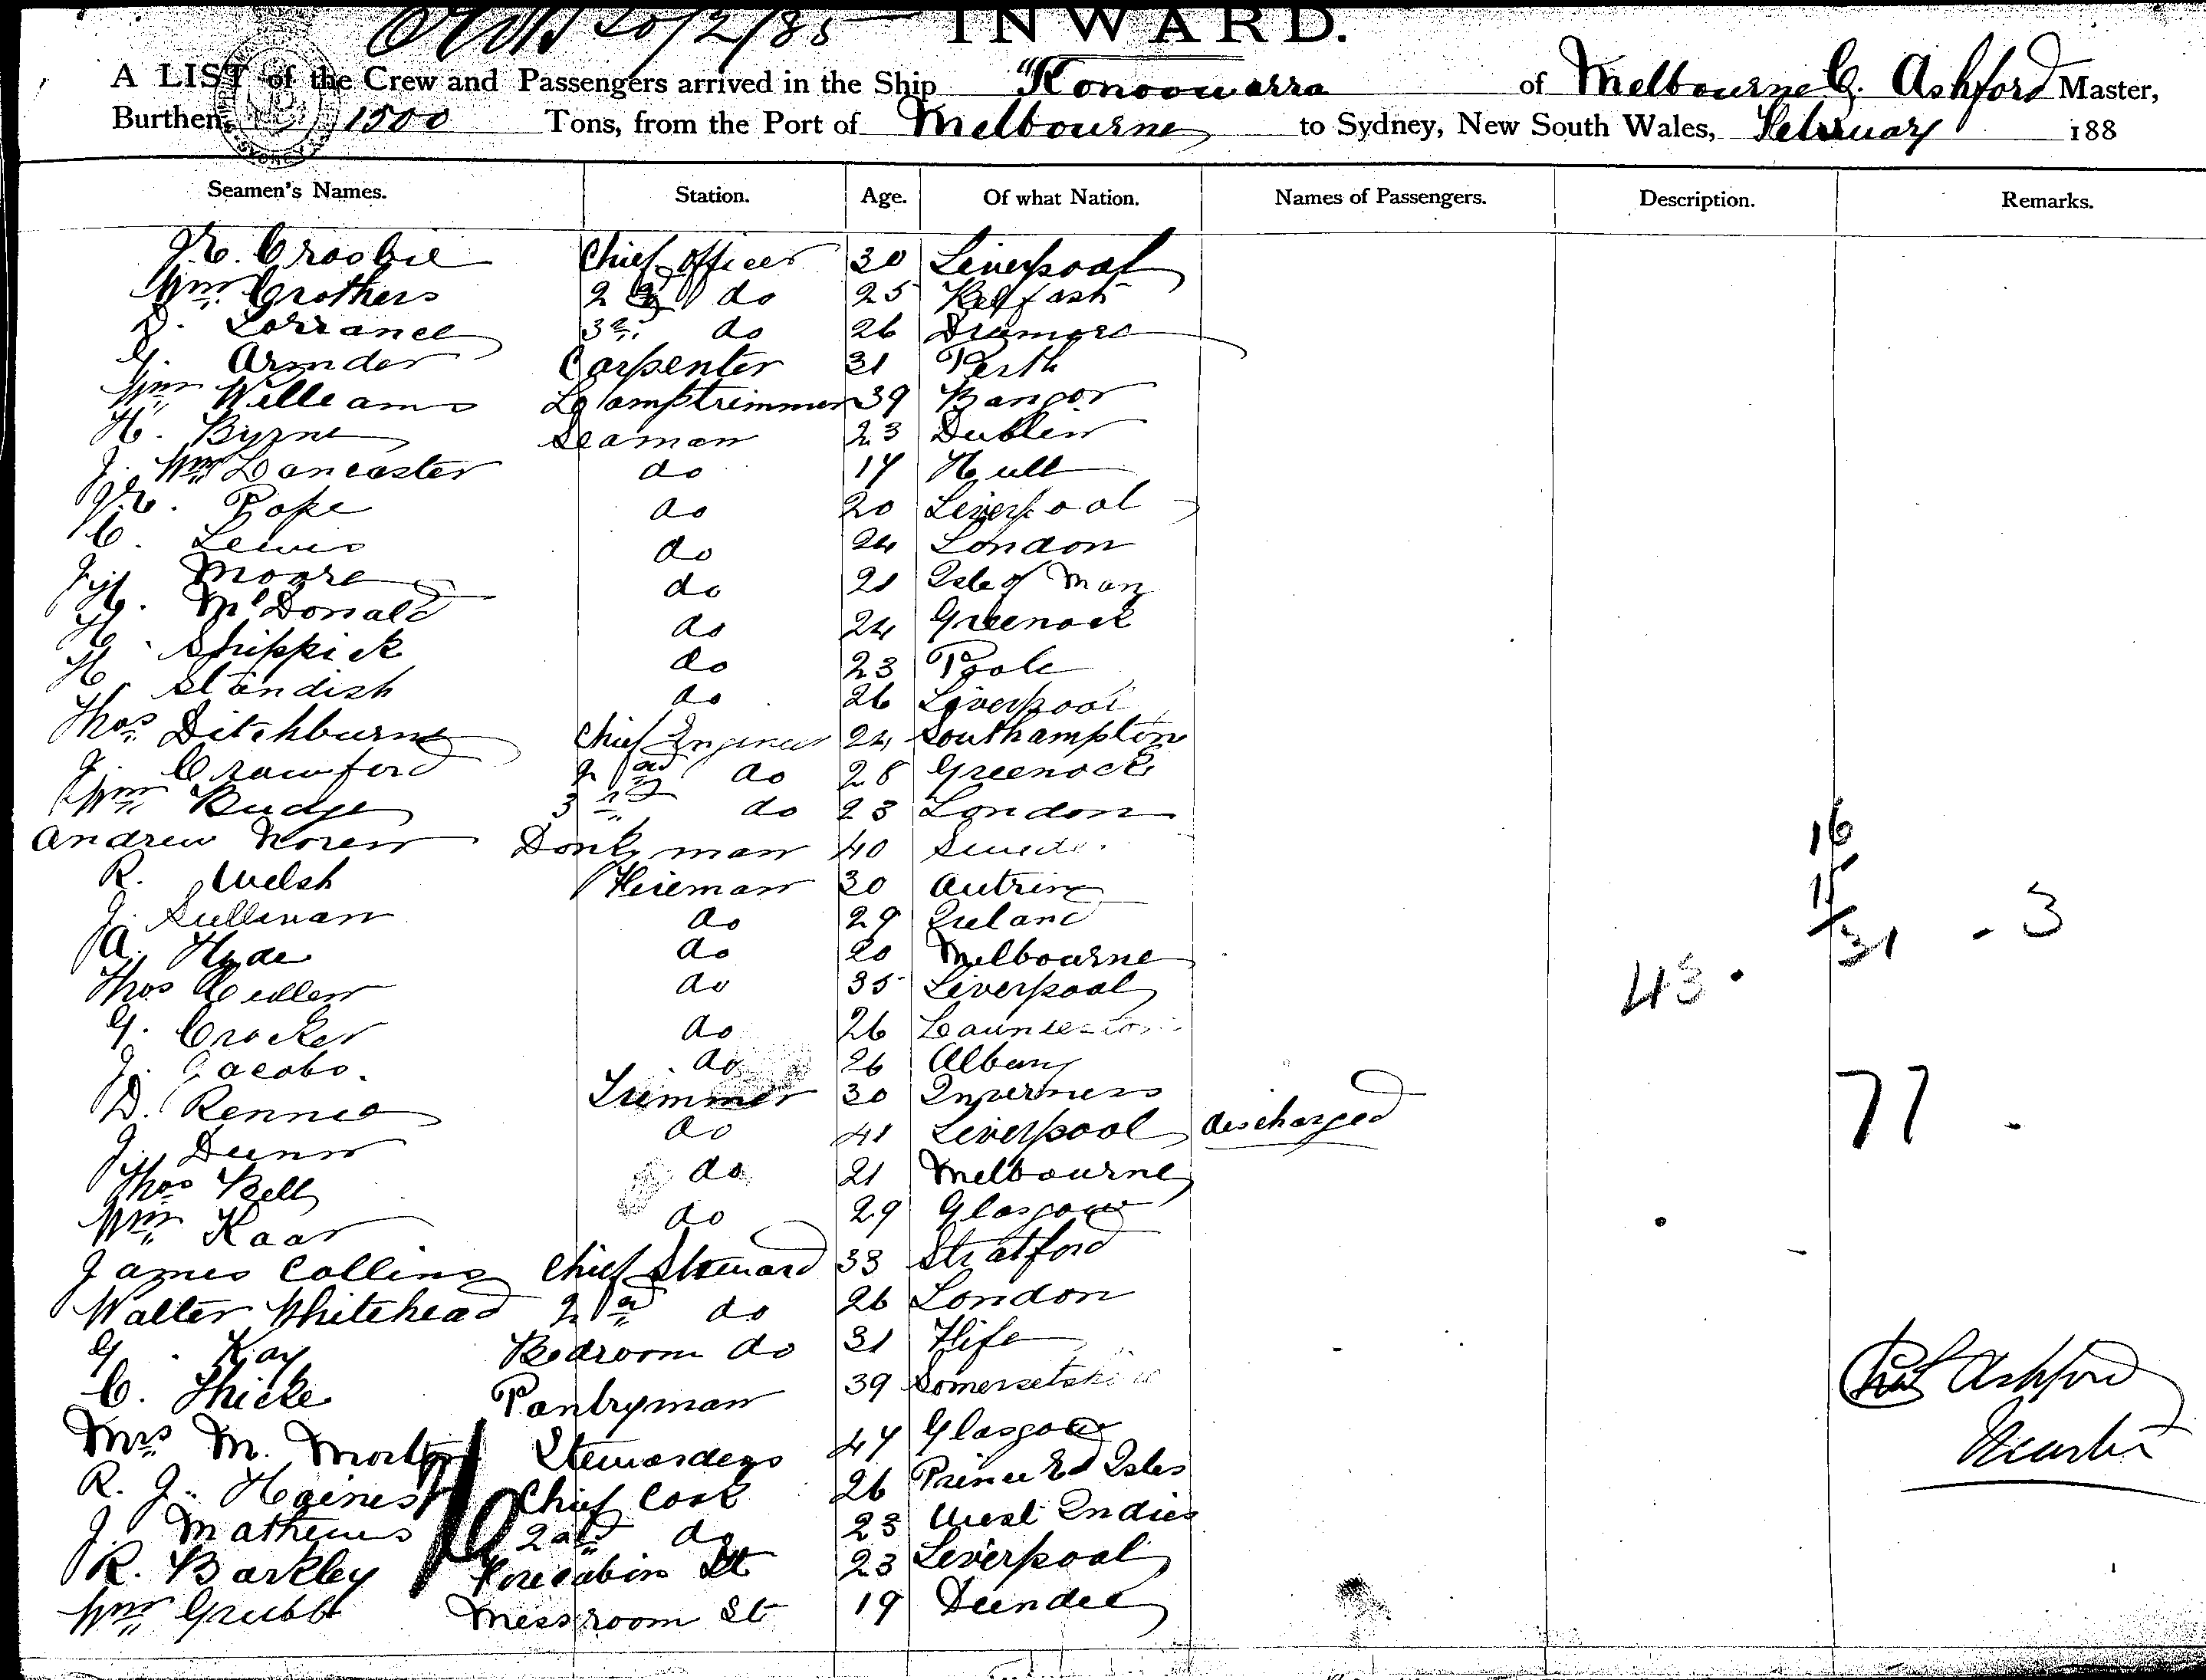 20/2/85 INWARD.
A LIST of the Crew and Passengers arrived in the Ship "Konoowarra of Melbourne C. Ashford Master,
Burthen 1500 Tons, from the Port of Melbourne to Sydney, New South Wales, February 188
Seamen's Names. Station. Age. Of what Nation. Names of Passengers. Description. Remarks.
J. C. Crosbie Chief officer 30 Liverpool
Wm Crothers 2nd do 25 Belfast
D. Lorrance 3rd do 26 Dramore
G. Arinder Carpenter 31 Perth
Wm Williams Lamptrimmer 39 Bangor
H. Byrne Seaman 23 Dublin
J. Wm Lancaster do 17 Hull
J. C. Pope do 20 Liverpool
C. Lewis do 24 London
Moore do 21 Isle of Man
H. McDonald do 24 Greenock
H. Shippick do 23 Poole
H. Standish do 26 Liverpool
Thos Ditchburne Chief Engineer 24 Southampton
J. Crawford 2nd do 28 Greenock
Wm Budge 3rd do 23 London
Andrew Noren Donkyman 40 Swede
R. Welsh Fireman 30 Antrim
J. Sullivan do 29 Ireland
A. Hyde do 20 Melbourne
Thos Cullen do 35 Liverpool
G. Crocker do 26 Launceston
J. Jacobs. do 26 Albany
D. Rennie Trimmer 30 Inverness
J. Dunn do 41 Liverpool discharged
Thos Bell do 21 Melbourne
Wm Kaar do 29 Glasgow
James Collins Chief Steward 33 Stratford
Walter Whitehead 2nd do 26 London
G. Kay Bedroom do 31 Fife
C. Thicke Pantryman 39 Somersetshire
Mrs M. Morton Stewardess 47 Glasgow
R. J. Haines Chief Cook 26 Prince Ed Isles
J. Mathews 2nd do 23 West Indies
R. Barkley Forecabin St 23 Liverpool
Wm Grubb Messroom St 19 Dundee
16
15
31 . 3
43 .
77 .
Ashford